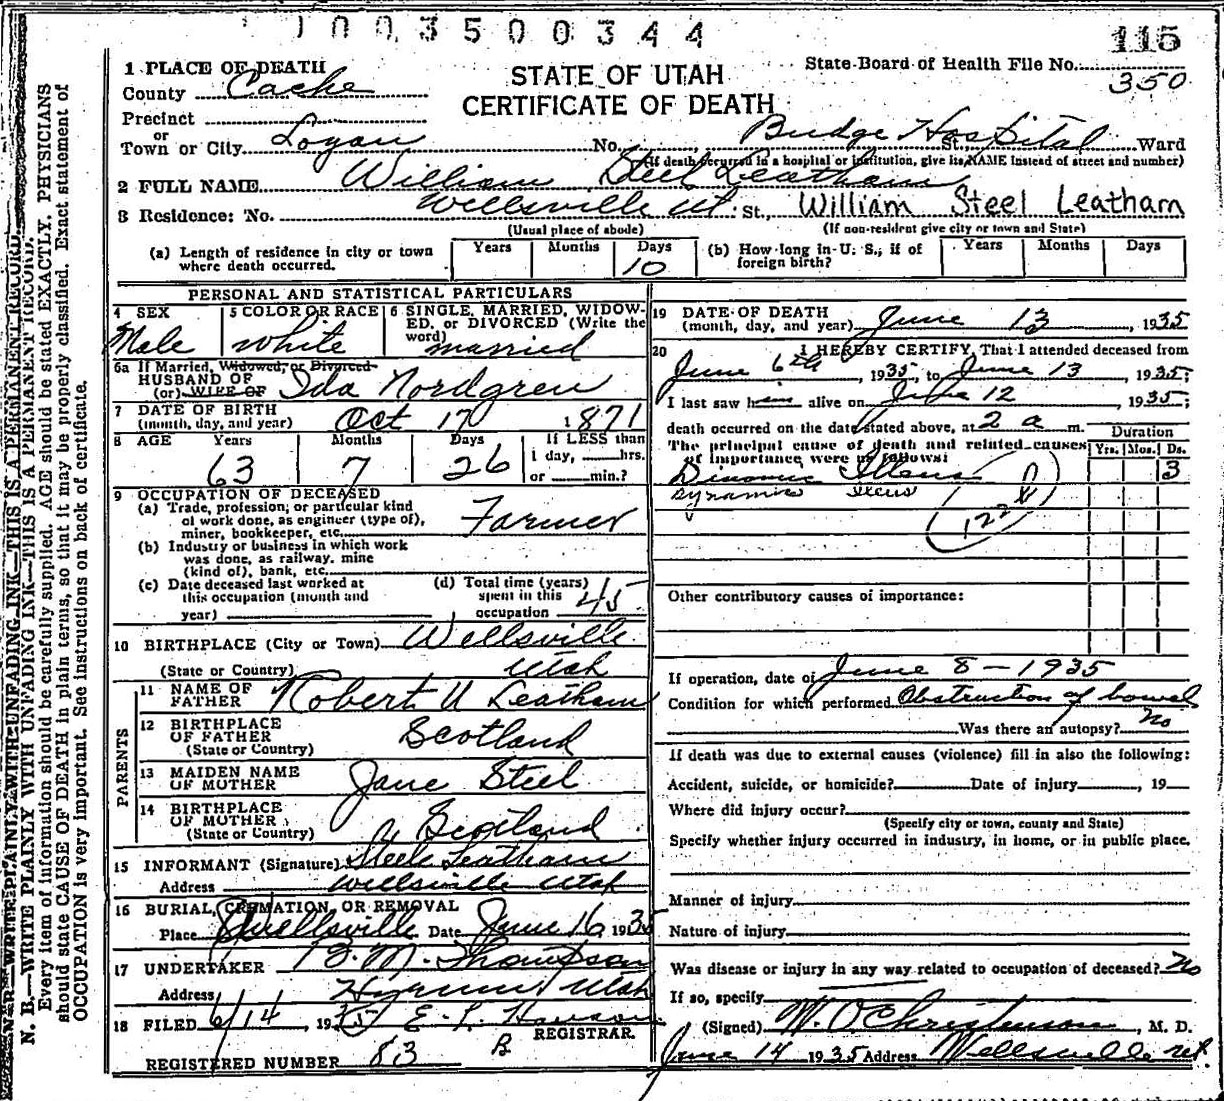 1003500344
115
1 PLACE OF DEATH
STATE OF UTAH
CERTIFICATE OF DEATH
State Board of Health File No.
350
County Cache
Precinct
or
Town or City Logan No. Budge Hospital St., Ward
(If death occurred in a hospital or institution, give its NAME instead of street and number)
2 FULL NAME William Steel Leatham
3 Residence: No. Wellsville Ut St., William Steel Leatham
(Usual place of abode) (If non-resident give city or town and State)
(a) Length of residence in city or town where death occurred. Years Months Days 10
(b) How long in U. S., if of foreign birth? Years Months Days
PERSONAL AND STATISTICAL PARTICULARS
4 SEX Male
5 COLOR OR RACE white
6 SINGLE, MARRIED, WIDOWED, or DIVORCED (Write the word) married
6a If Married, Widowed, or Divorced
HUSBAND OF
(or) WIFE OF Ida Nordgren
7 DATE OF BIRTH
(month, day, and year) Oct 17 1871
8 AGE Years 63 Months 7 Days 26 If LESS than 1 day, hrs. or min.?
9 OCCUPATION OF DECEASED
(a) Trade, profession, or particular kind
of work done, as engineer (type of),
miner, bookkeeper, etc. Farmer
(b) Industry or business in which work
was done, as railway, mine
(kind of), bank, etc.
(c) Date deceased last worked at
this occupation (month and
year)
(d) Total time (years)
spent in this
occupation 45
10 BIRTHPLACE (City or Town) Wellsville
(State or Country) Utah
PARENTS
11 NAME OF
FATHER Robert U Leatham
12 BIRTHPLACE
OF FATHER
(State or Country) Scotland
13 MAIDEN NAME
OF MOTHER Jane Steel
14 BIRTHPLACE
OF MOTHER
(State or Country) Scotland
15 INFORMANT (Signature) Steele Leatham
Address Wellsville Utah
16 BURIAL, CREMATION, OR REMOVAL
Place Wellsville Date June 16, 1935
17 UNDERTAKER B. M. Thompson
Address Hyrum Utah
18 FILED 6/14, 1935 E. L. Hanson
REGISTRAR
REGISTERED NUMBER 83 B
19 DATE OF DEATH
(month, day, and year) June 13, 1935
20 I HEREBY CERTIFY, That I attended deceased from
June 6th, 1935, to June 13 1935;
I last saw him alive on June 12, 1935;
death occurred on the date stated above, at 2 a m.
The principal cause of death and related causes
of importance were as follows:
Duration
Yrs. Mos. Ds.
Ileus 3
Dynamic Ileus
(122 b)
Other contributory causes of importance:
If operation, date of June 8 - 1935
Condition for which performed Obstruction of bowel
Was there an autopsy? No
If death was due to external causes (violence) fill in also the following:
Accident, suicide, or homicide? Date of injury, 19
Where did injury occur?
(Specify city or town, county and State)
Specify whether injury occurred in industry, in home, or in public place.
Manner of injury
Nature of injury
Was disease or injury in any way related to occupation of deceased? No
If so, specify
(Signed) W. O. Christenson, M. D.
June 14 1935 Address Wellsville Ut.
N. B.—WRITE PLAINLY WITH UNFADING INK—THIS IS A PERMANENT RECORD.
Every item of information should be carefully supplied. AGE should be stated EXACTLY. PHYSICIANS
should state CAUSE OF DEATH in plain terms, so that it may be properly classified. Exact statement of
OCCUPATION is very important. See instructions on back of certificate.